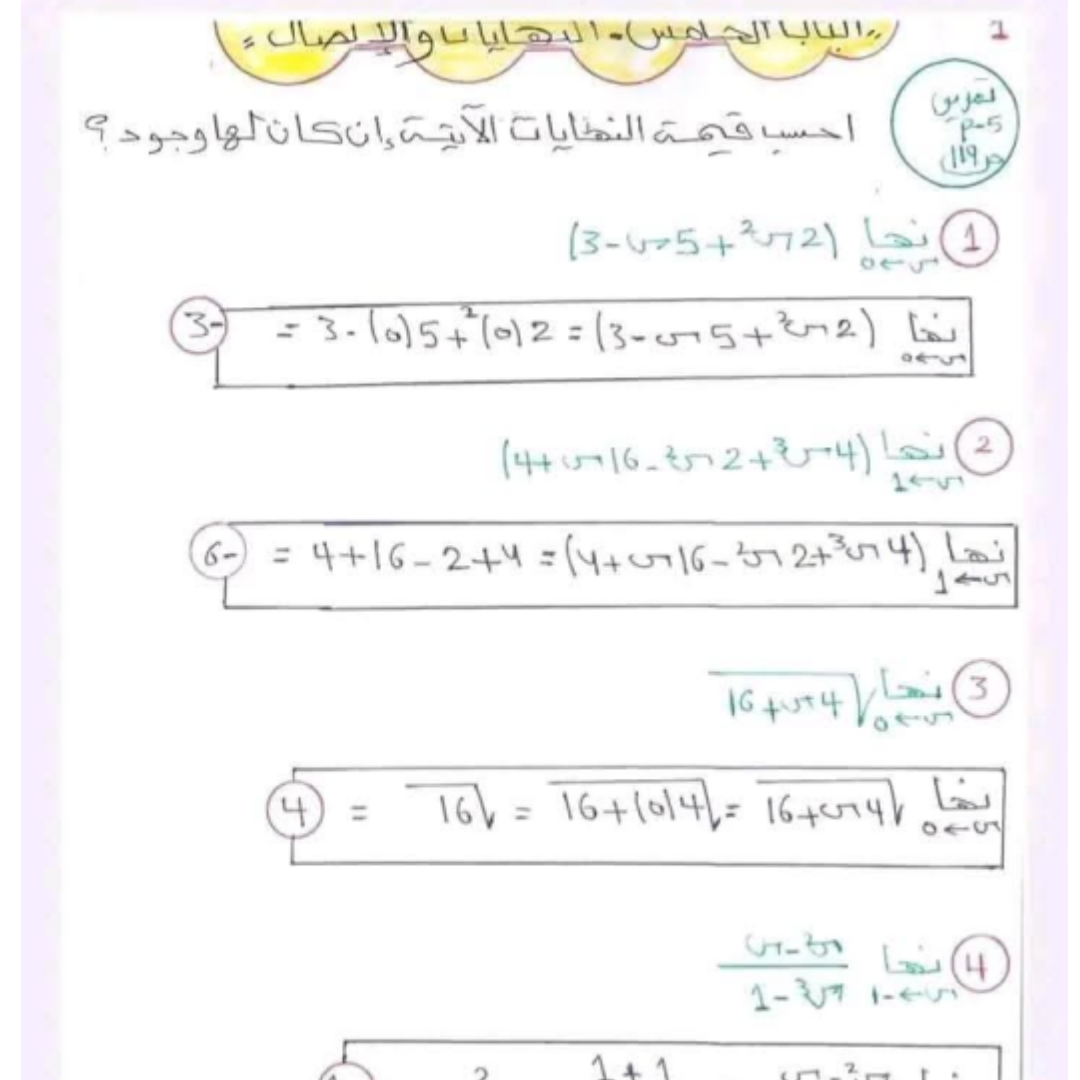 1
"الباب الخامس - النهايات والإتصال"
تمرين
5-م
ص119
احسب قيمة النهايات الآتية، إن كان لها وجود؟
1 نها س←0 (2س²+5س-3)
نها س←0 (2س²+5س-3) = 2(0)²+5(0)-3 = -3
2 نها س←1 (4س³+2س²-16س+4)
نها س←1 (4س³+2س²-16س+4) = 4+2-16+4 = -6
3 نها س←0 √4س+16
نها س←0 √4س+16 = √4(0)+16 = √16 = 4
4 نها س←-1 س²-س / س³-1